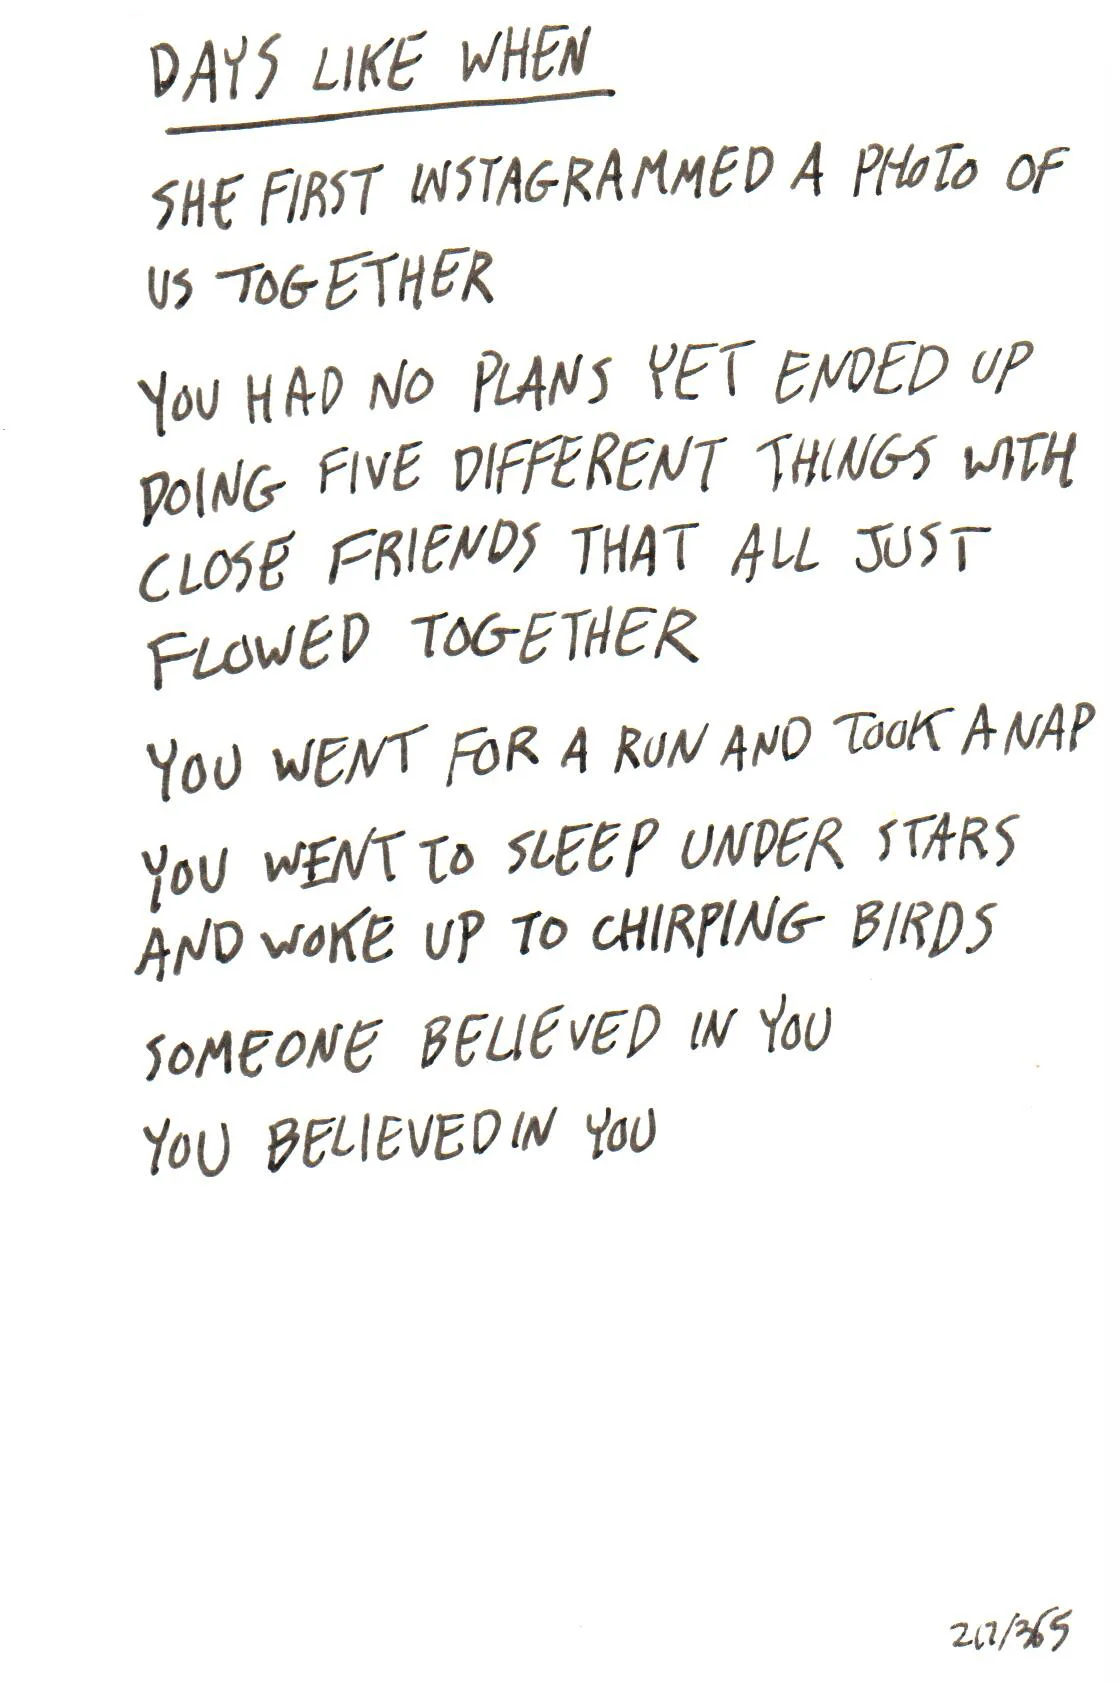 DAYS LIKE WHEN
SHE FIRST INSTAGRAMMED A PHOTO OF
US TOGETHER
YOU HAD NO PLANS YET ENDED UP
DOING FIVE DIFFERENT THINGS WITH
CLOSE FRIENDS THAT ALL JUST
FLOWED TOGETHER
YOU WENT FOR A RUN AND TOOK A NAP
YOU WENT TO SLEEP UNDER STARS
AND WOKE UP TO CHIRPING BIRDS
SOMEONE BELIEVED IN YOU
YOU BELIEVED IN YOU
217/365